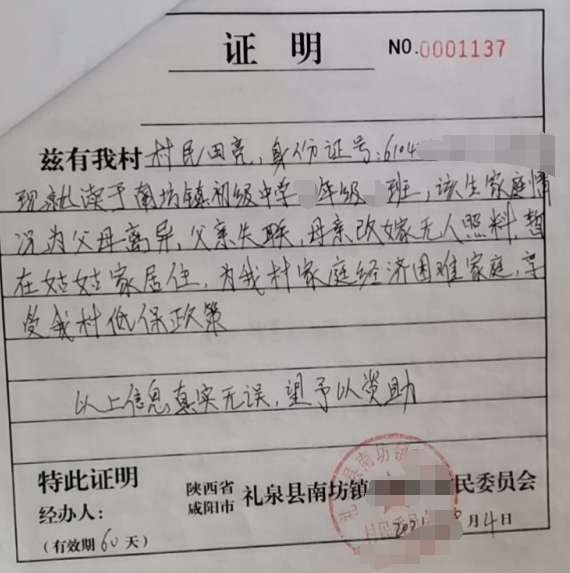 证 明
NO.0001137
兹有我村村民田亮，身份证号：6104
现就读于南坊镇初级中学 年级 班，该生家庭情
况为父母离异，父亲失联，母亲改嫁无人照料，暂
在姑姑家居住，为我村家庭经济困难家庭，享
受我村低保政策
以上信息真实无误，望予以资助
特此证明
陕西省咸阳市 礼泉县南坊镇 民委员会
经办人：
月4日
（有效期60天）